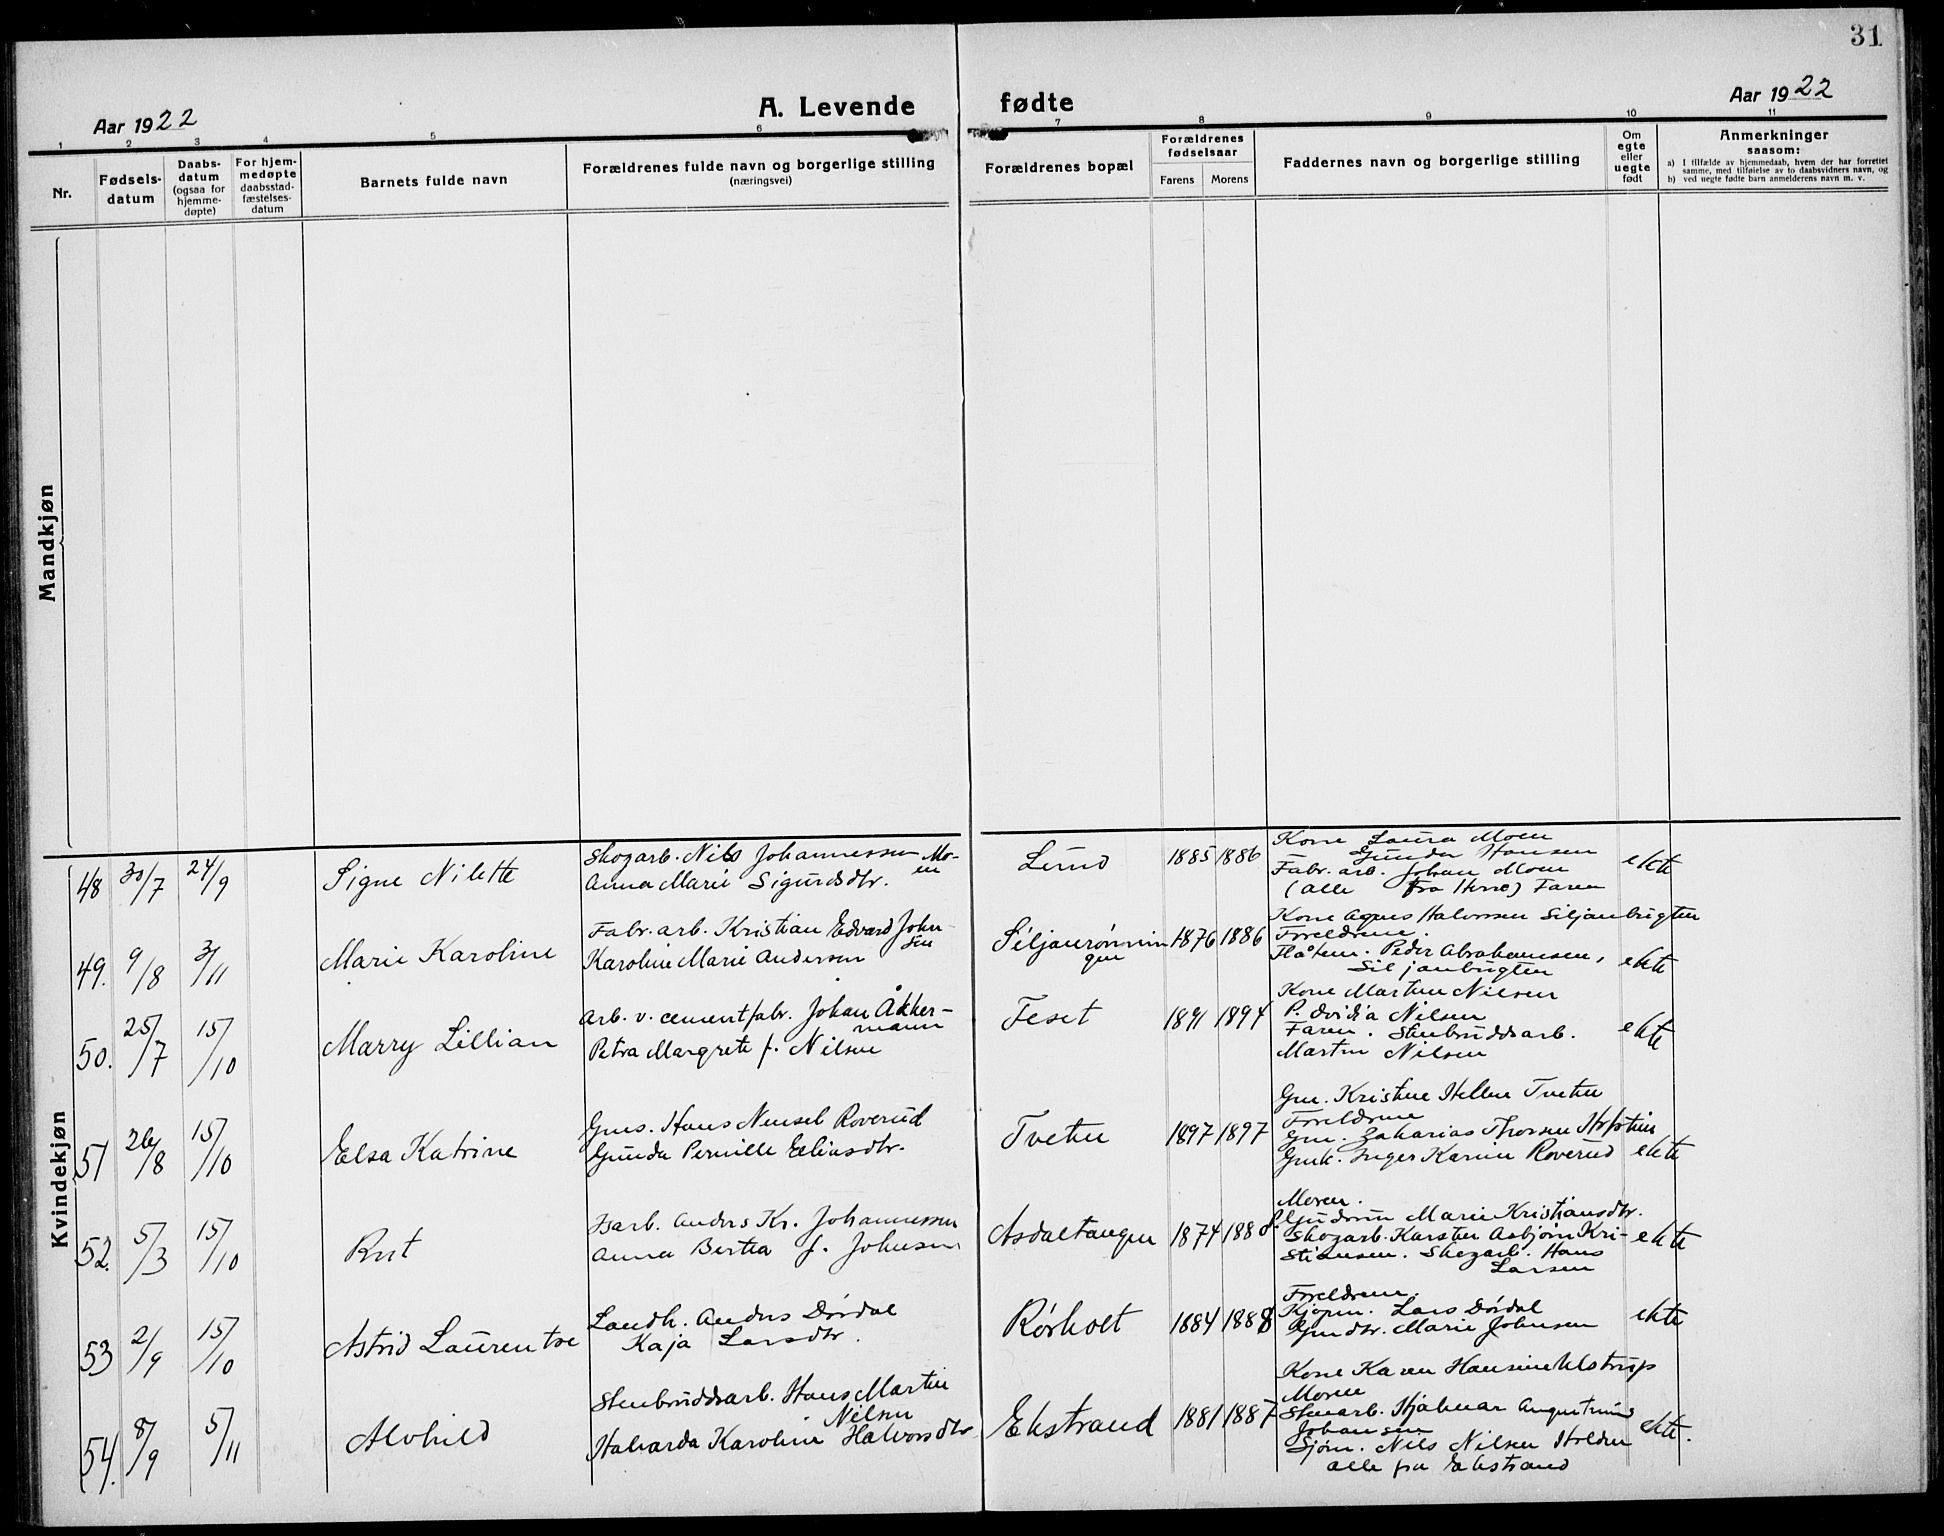 31
Aar 1922
A. Levende fødte
Aar 1922
1 2 3 4 5 6 7 8 9 10 11
Nr.
Fødsels-
datum
Daabs-
datum
(ogsaa for
hjemme-
døpte)
For hjem-
medøpte
daabsstad-
fæstelses-
datum
Barnets fulde navn
Forældrenes fulde navn og borgerlige stilling
(næringsvei)
Forældrenes bopæl
Forældrenes
fødselsaar
Farens Morens
Faddernes navn og borgerlige stilling
Om
egte
eller
uegte
født
Anmerkninger
saasom:
a) I tilfælde av hjemmedaab, hvem der har forrettet
samme, med tilføielse av to daabsvidners navn, og
b) ved uegte fødte barn anmelderens navn m. v.
Mandkjøn
Kvindekjøn
48 30/7 24/9
Signe Nilette
Skogarb. Nils Johannessen Mo-
en
Anna Marie Sigurdsdtr.
Lund
1885 1886
Kone Laura Moen
Gunda Hansen
Fabr. arb. Johan Moen
(alle fra Herre) Faren
ekte
49. 9/8 3/11
Marie Karoline
Fabr. arb. Kristian Edvard John-
sen
Karoline Marie Andersen
Siljanrønnin
gen
1876 1886
Kone Agnes Halvorsen Siljanbugten
Foreldrene.
Flåtem. Peder Abrahamsen,
Siljanbugten
ekte
50. 25/7 15/10
Marry Lillian
Arb. v. cementfabr. Johan Åkker-
mann
Petra Margrete f. Nilsen
Feset
1891 1894
Kone Martine Nilsen
P. Nilsen
Faren. Stenbruddsarb.
Martin Nilsen
ekte
51 26/8 15/10
Elsa Katrine
Gms. Hans Roverud
Gunda Pernille Eeliasdtr.
Tveten
1897 1897
Gm. Kristine Tveten
Foreldrene
Gm. Zakarias Thorsen
Gmk. Inger Karine Roverud
ekte
52. 5/3 15/10
Rut
Isarb. Anders Kr. Johannessen
Anna Bertea f. Johnsen
Asdaltangen
1874 1880
Moren.
Gudrun Marie Kristiansdtr.
Skogarb. Karsten Asbjørn Kri-
stiansen. Skogarb. Hans
Larsen
ekte
53 2/9 15/10
Astrid Laurentse
Landh. Anders Dørdal
Kaja Larsdtr.
Rørholt
1884 1888
Foreldrene.
Kjøpm. Lars Dørdal
Gmdtr. Marie Johnsen
ekte
54. 8/9 5/11
Alvhild
Stenbruddsarb. Hans Martin
Nilsen
Halvarda Karoline Halvorsdtr
Ekstrand
1881 1887
Kone Karen Hansine Ulstrup
Moren
Stenarb. Hjalmar
Johansen
Sjøm. Nils Nilsen Holden
alle fra Ekstrand
ekte.